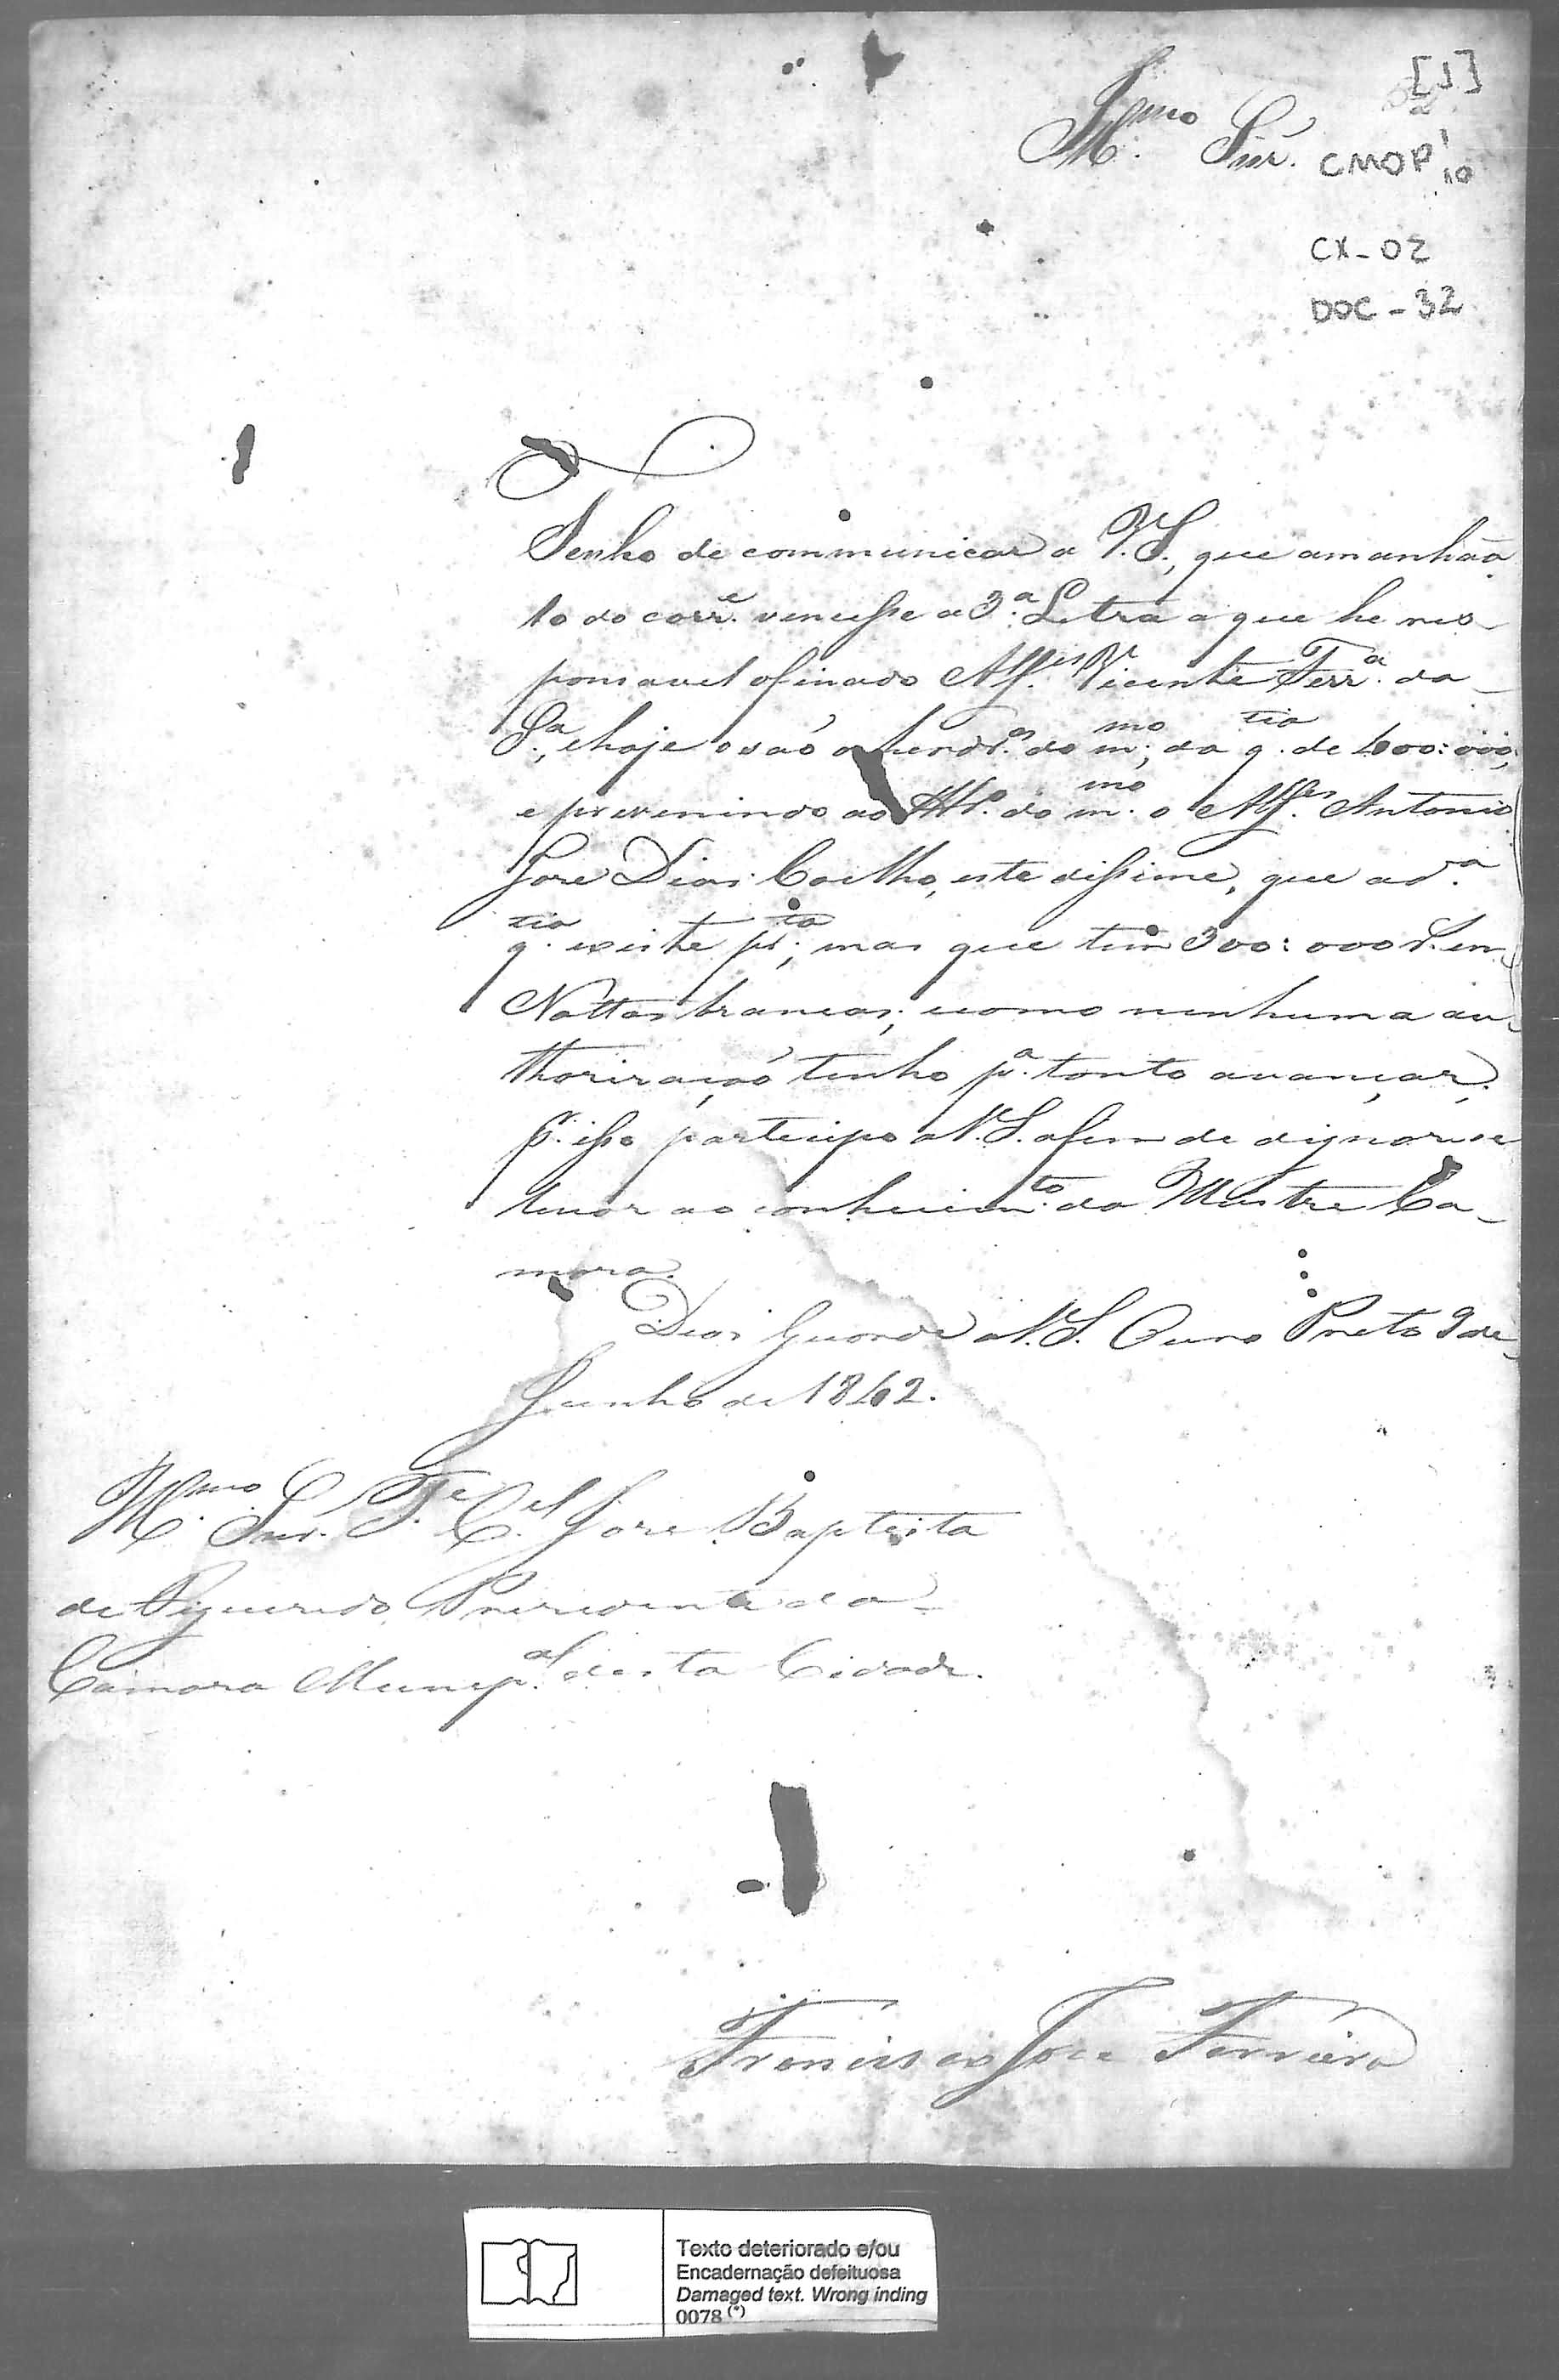 [1]
Ill.mo Snr. CMOP
CX-02
DOC-32
Tenho de communicar a V.S., que amanhãa
10 do corr.e vencesse a 3.a Letra a que he res-
ponsavel o finado Alf.es Vicente Ferr.a da
S.a, e hoje o saõ os herdr.os do m.mo, da q.tia de 400:000,
e prevenindo ao do m.mo o Alf.es Antonio
Jose Dias Coelho, este dissime, que ad.a
q.tia existe pr.ta; mas que tem 300:000 r. em
Nottas brancas; e como ninhuma au-
thorizaçaõ tenho p.a tanto avançar;
p.r isso partecipo a V.S. afim de dignarse
levar ao conhecim.to da Illustre Ca-
mara.
Deos Guarde a V.S. Ouro Preto 9 de
Junho de 1842.
Ill.mo Snr. T.e C.el Jose Baptista
de Figueredo, Presidente da
Camara Munep.al desta Cidade.
Francisco Jose Ferreira
Texto deteriorado e/ou
Encadernação defeituosa
Damaged text. Wrong inding
0078 (*)